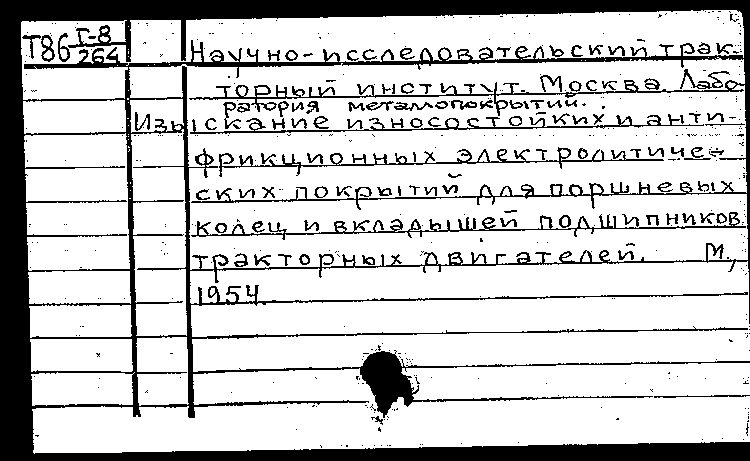 Т86 I-8/264
Научно-исследовательский трак-
торный институт. Москва. Лабо-
ратория металлопокрытий.
Изыскание износостойких и анти-
фрикционных электролитиче-
ских покрытий для поршневых
колец и вкладышей подшипников
тракторных двигателей. М.,
1954.